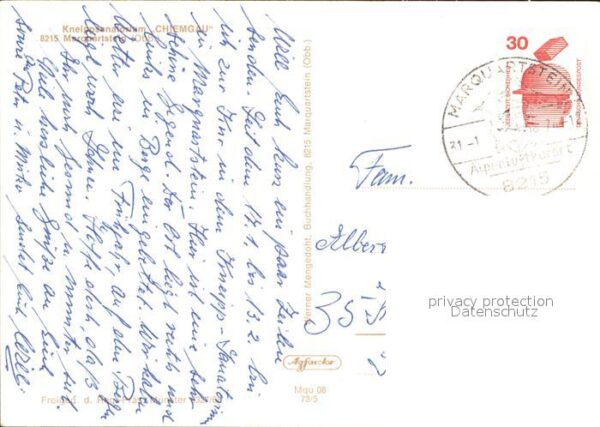 Kneippsanatorium "CHIEMGAU"
8215 Marquartstein (Obb.)
Will Euch kurz ein paar Zeilen
senden. Seit dem 17.1. bis 13.2. bin
ich zur Kur in dem Kneipp-Sanatorium
in Marquartstein. Hier ist eine sehr
schöne Gegend. Der Ort liegt rechts und
links in Berge eingebettet. Wir haben
Wetter wie im Frühjahr, auf den Bergen
liegt noch Schnee. Hoffe doch, daß
Ihr noch gesund u. munter seid.
Viele herzliche Grüße an Euch
sendet Euch Willi
Werner Mengedoht, Buchhandlung, 8215 Marquartstein (Obb.)
Agfacolor
Mqu 08
73/5
Freigeg. d. Reg. Präs. Münster
30
DEUTSCHE BUNDESPOST
MARQUARTSTEIN
31.-1.
8215
Fam.
35
privacy protection
Datenschutz